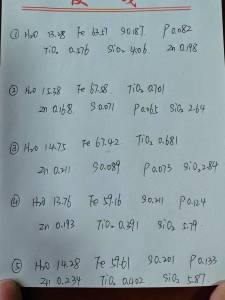 ① H₂O 13.28 Fe 63.57 S 0.187 P 0.082
TiO₂ 0.576 SiO₂ 4.06 Zn 0.198
② H₂O 15.38 Fe 67.58 TiO₂ 0.701
Zn 0.168 S 0.071 P 0.065 SiO₂ 2.64
③ H₂O 14.75 Fe 67.42 TiO₂ 0.681
Zn 0.211 S 0.089 P 0.073 SiO₂ 2.84
④ H₂O 13.76 Fe 59.16 S 0.211 P 0.124
Zn 0.193 TiO₂ 0.391 SiO₂ 5.79
⑤ H₂O 14.28 Fe 59.61 S 0.201 P 0.133
Zn 0.234 TiO₂ 0.402 SiO₂ 5.87